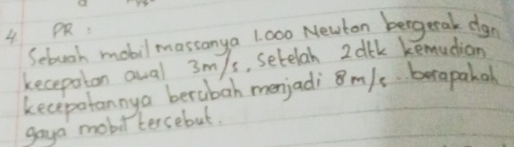 4. PR :
Sebuah mobil massanya 1.000 Newton bergerak dgn
kecepatan awal 3m/s. Setelah 2 dtk kemudian
kecepatannya berubah menjadi 8m/s. berapakah
gaya mobil tersebut.